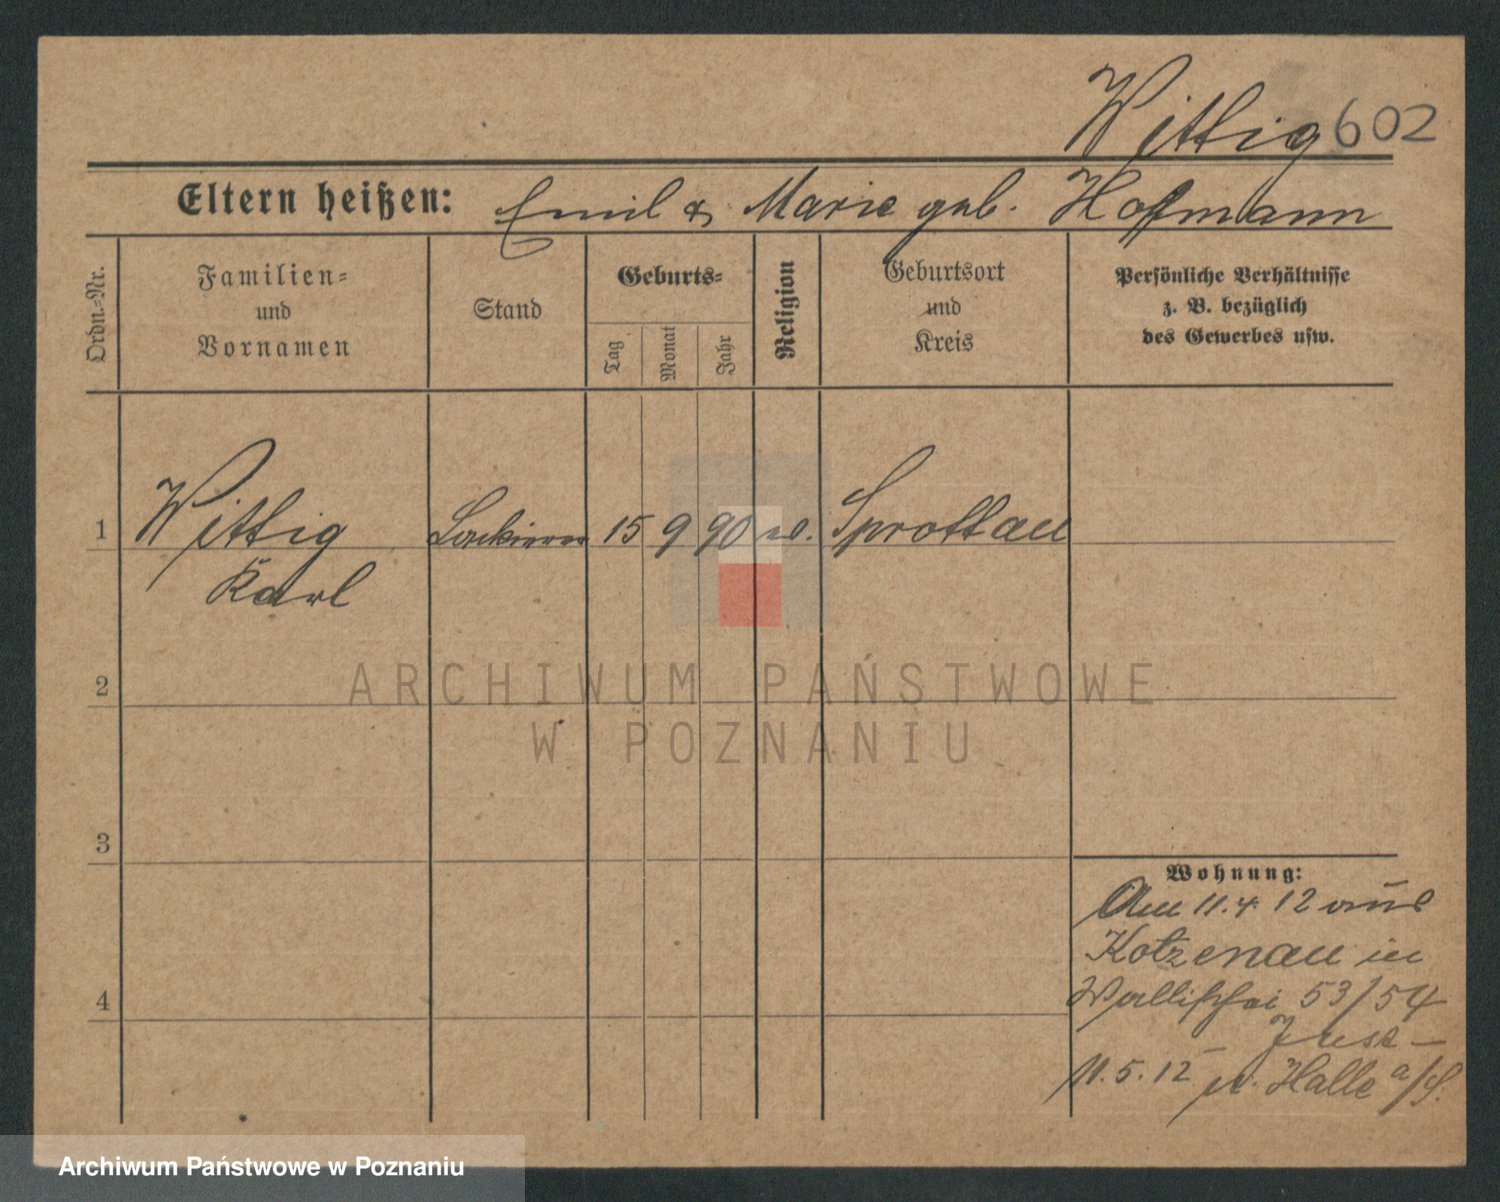 Wittig 602
Eltern heißen: Emil & Marie geb. Hofmann
Ordn.-Nr.
Familien-
und
Vornamen
Stand
Geburts-
Tag
Monat
Jahr
Religion
Geburtsort
und
Kreis
Persönliche Verhältnisse
z. B. bezüglich
des Gewerbes usw.
1 Wittig Lackierer 15 9 90 ev. Sprottau
Karl
2
3
4
Wohnung:
Am 11.4.12 aus
Kotzenau in
Wallischei 53/54
11.5.12 n. Halle a/S.
ARCHIWUM PAŃSTWOWE
W POZNANIU
Archiwum Państwowe w Poznaniu